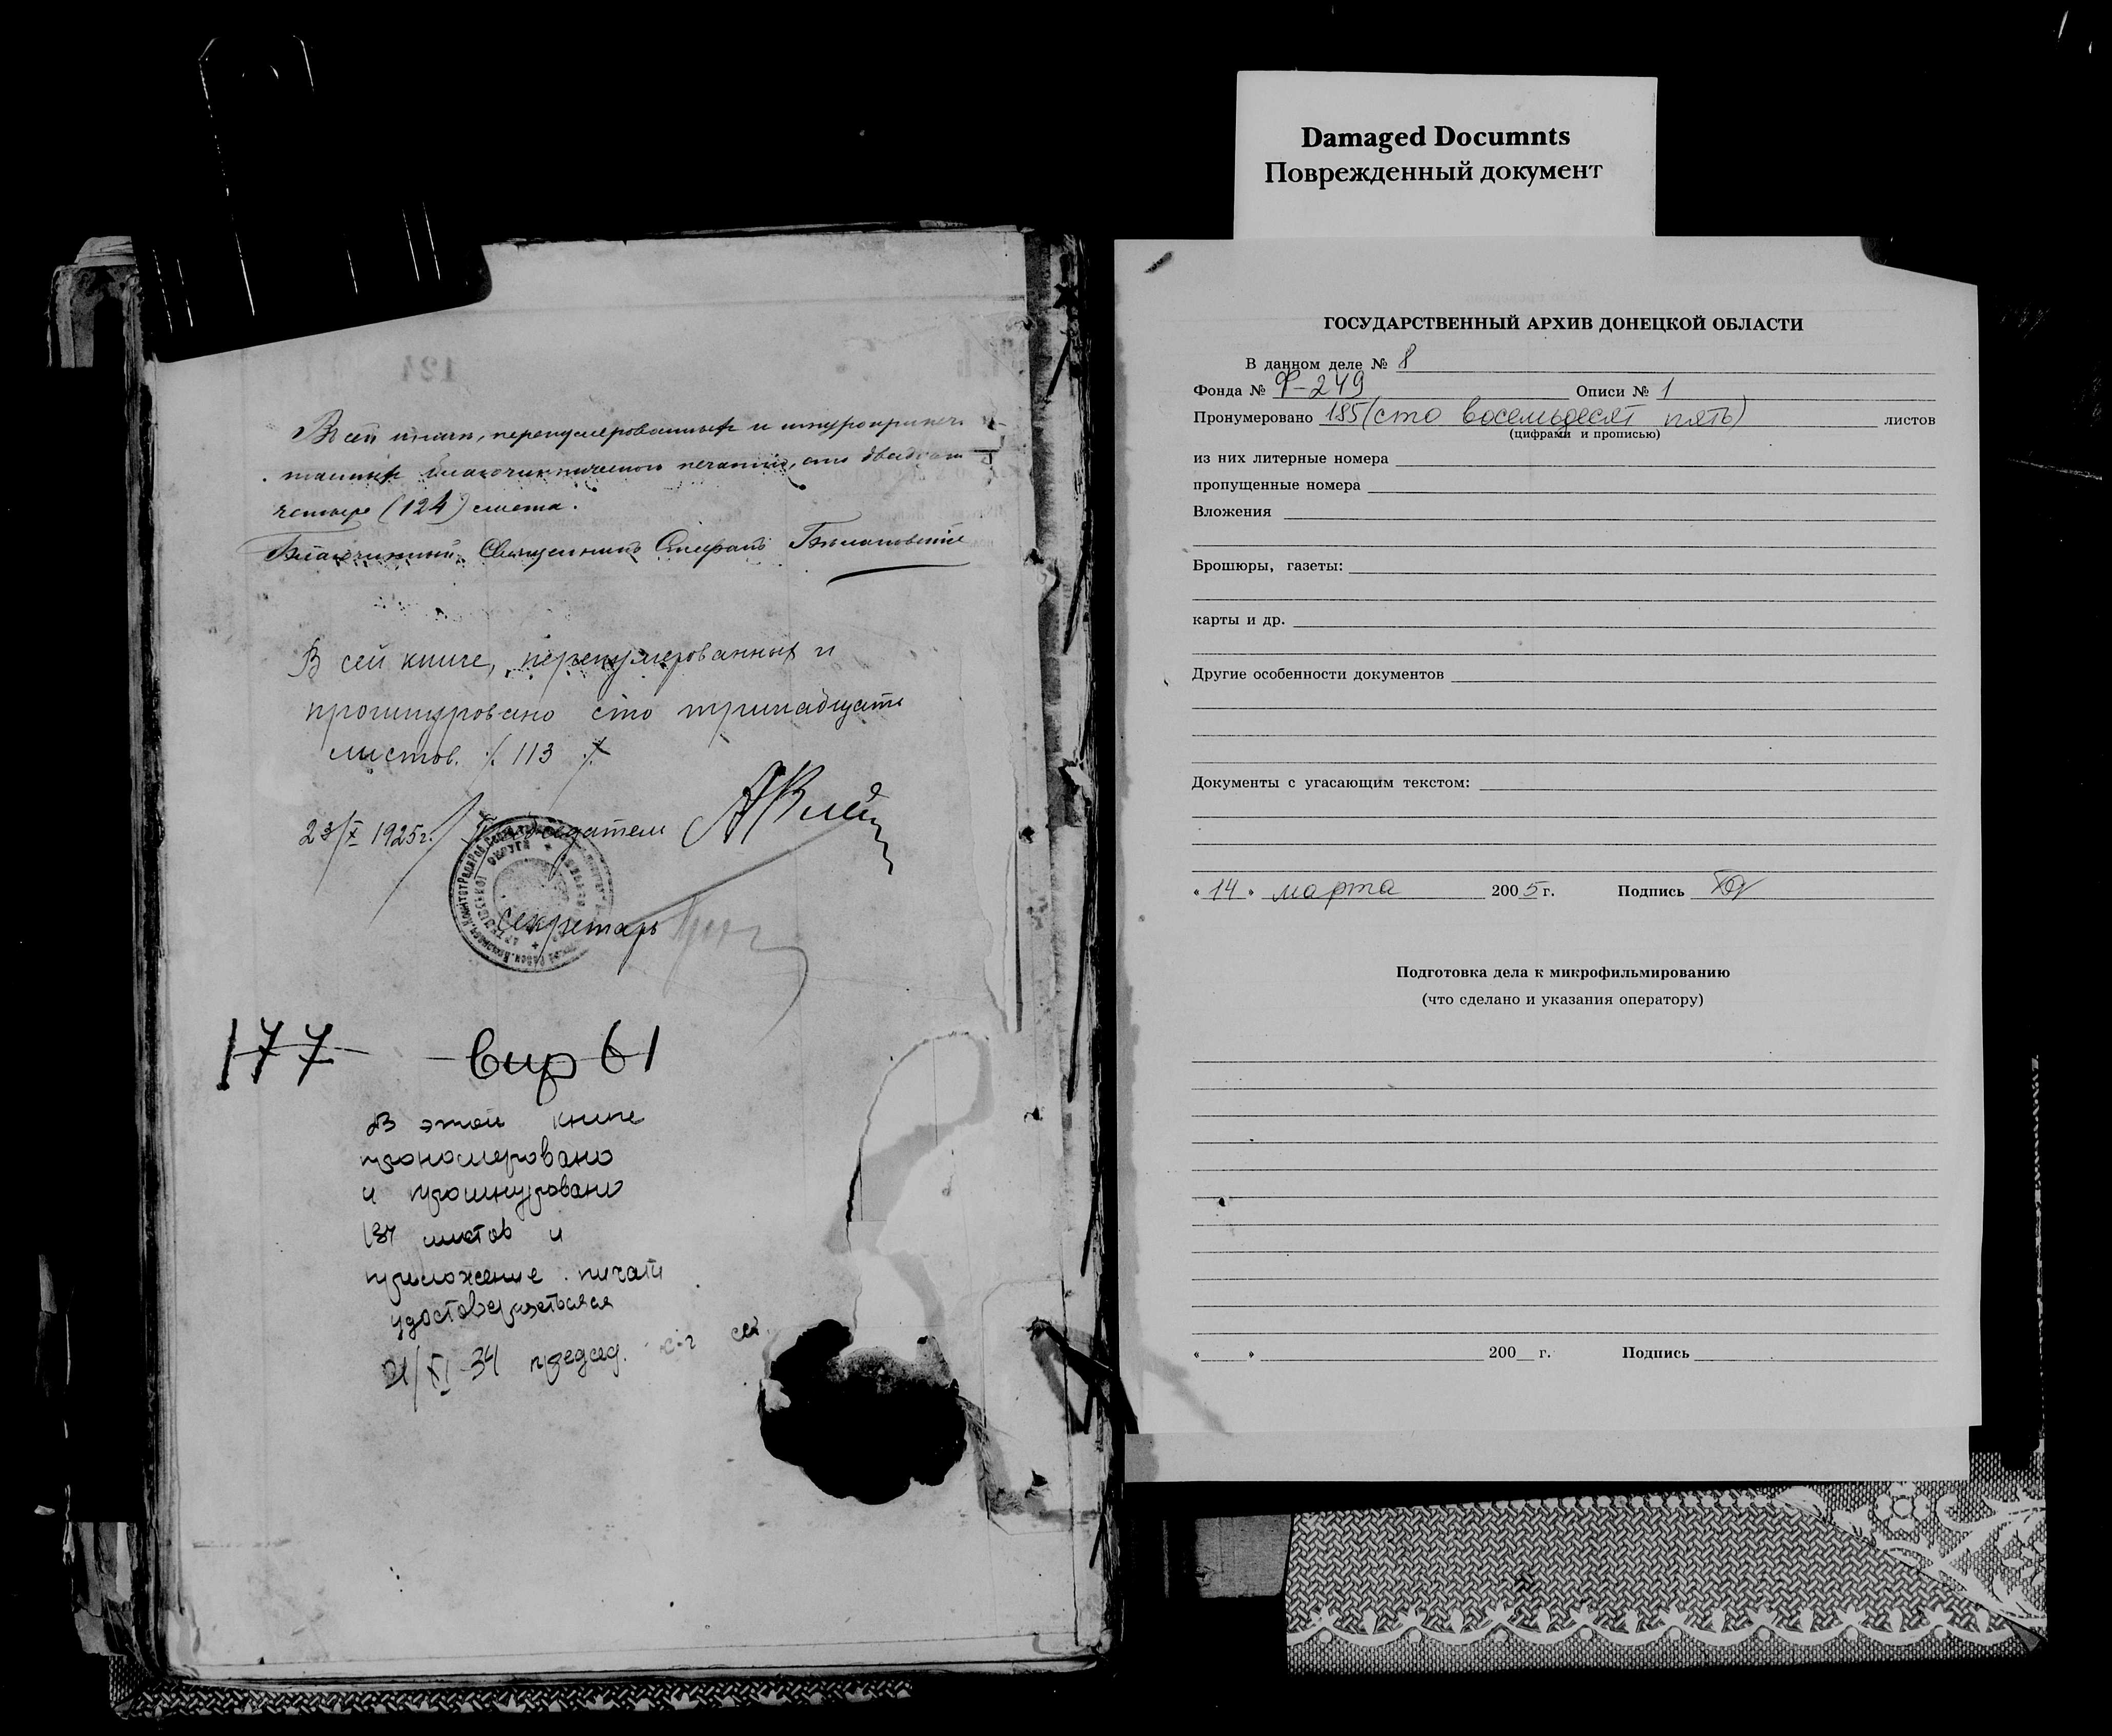 Damaged Documnts
Поврежденный документ
124
Въ сей книги, перенумерованныхъ и
печатью, сто двадцать
четыре (124) листа.
Благочинный, Священникъ Стефанъ
В сей книге, перенумерованных и
прошнуровано сто тринадцать
листов. /. 113 ./.
23/X 1925г. Председатель
Секретарь
177 вир 61
В этой книге
прономеровано
и прошнуровано
листов и
приложение печати
удостоверяеться
21/XI-34 председ.
ГОСУДАРСТВЕННЫЙ АРХИВ ДОНЕЦКОЙ ОБЛАСТИ
В данном деле № 8
Фонда № Ф-249 Описи № 1
Пронумеровано 185 (сто восемьдесят пять) листов
(цифрами и прописью)
из них литерные номера
пропущенные номера
Вложения
Брошюры, газеты:
карты и др.
Другие особенности документов
Документы с угасающим текстом:
« 14 » марта 2005 г. Подпись
Подготовка дела к микрофильмированию
(что сделано и указания оператору)
« » 200 г. Подпись